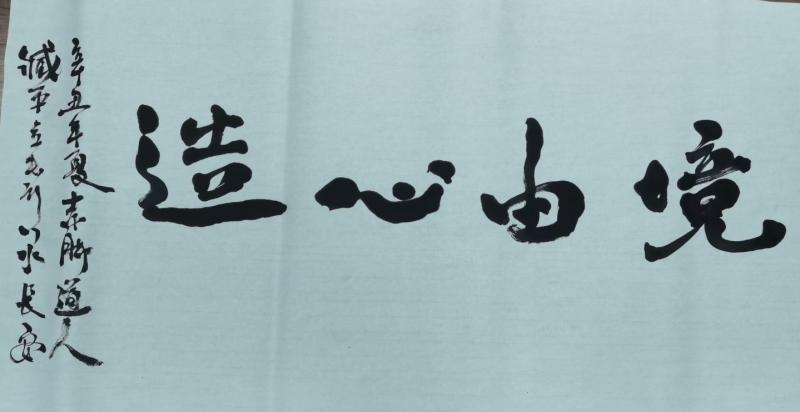 境由心造
辛丑年夏赤脚道人
臧平立书于八水长安